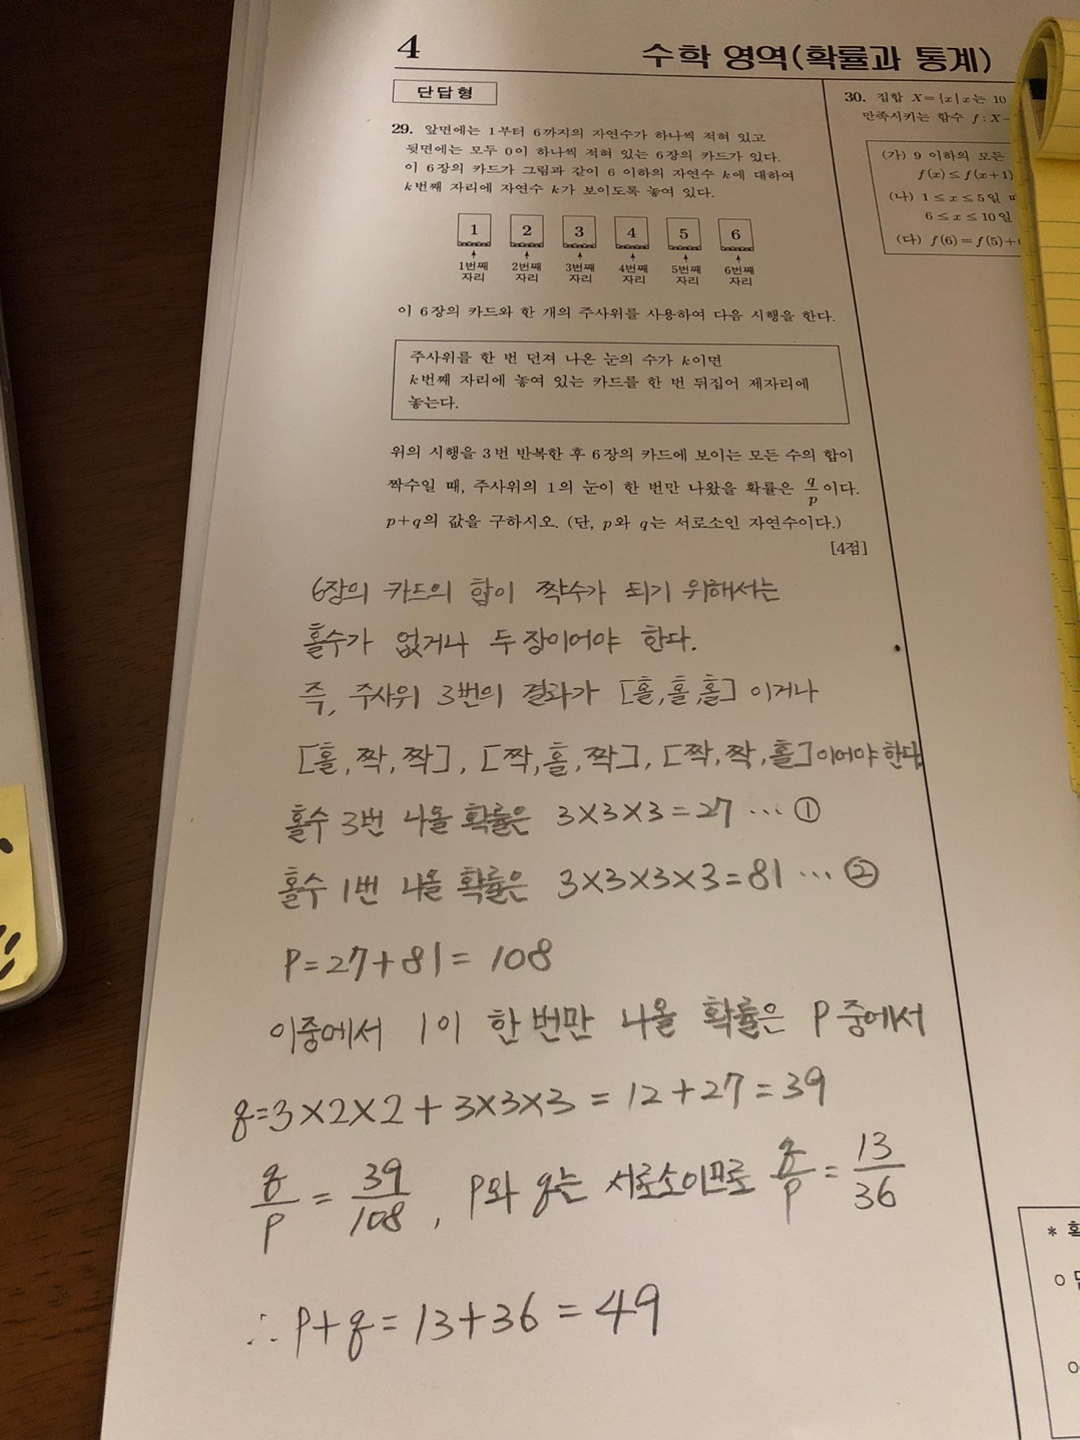 4
수학 영역(확률과 통계)
단답형
29. 앞면에는 1부터 6까지의 자연수가 하나씩 적혀 있고
뒷면에는 모두 0이 하나씩 적혀 있는 6장의 카드가 있다.
이 6장의 카드가 그림과 같이 6 이하의 자연수 k에 대하여
k번째 자리에 자연수 k가 보이도록 놓여 있다.
1 2 3 4 5 6
1번째 자리 2번째 자리 3번째 자리 4번째 자리 5번째 자리 6번째 자리
이 6장의 카드와 한 개의 주사위를 사용하여 다음 시행을 한다.
주사위를 한 번 던져 나온 눈의 수가 k이면
k번째 자리에 놓여 있는 카드를 한 번 뒤집어 제자리에
놓는다.
위의 시행을 3번 반복한 후 6장의 카드에 보이는 모든 수의 합이
짝수일 때, 주사위의 1의 눈이 한 번만 나왔을 확률은 q/p이다.
p+q의 값을 구하시오. (단, p와 q는 서로소인 자연수이다.)
[4점]
6장의 카드의 합이 짝수가 되기 위해서는
홀수가 없거나 두 장이어야 한다.
즉, 주사위 3번의 결과가 [홀,홀,홀] 이거나
[홀,짝,짝], [짝,홀,짝], [짝,짝,홀]이어야 한다
홀수 3번 나올 확률은 3×3×3=27 … ①
홀수 1번 나올 확률은 3×3×3×3=81 … ②
P=27+81= 108
이중에서 1이 한 번만 나올 확률은 P 중에서
q=3×2×2+3×3×3 = 12+27=39
q/p = 39/108, p와 q는 서로소이므로 q/p = 13/36
∴ p+q = 13+36 = 49
30. 집합 X={x|x는 10
만족시키는 함수 f : X
(가) 9 이하의 모든
f(x)≤f(x+1)
(나) 1≤x≤5일
6≤x≤10일
(다) f(6)=f(5)+
*
○
○